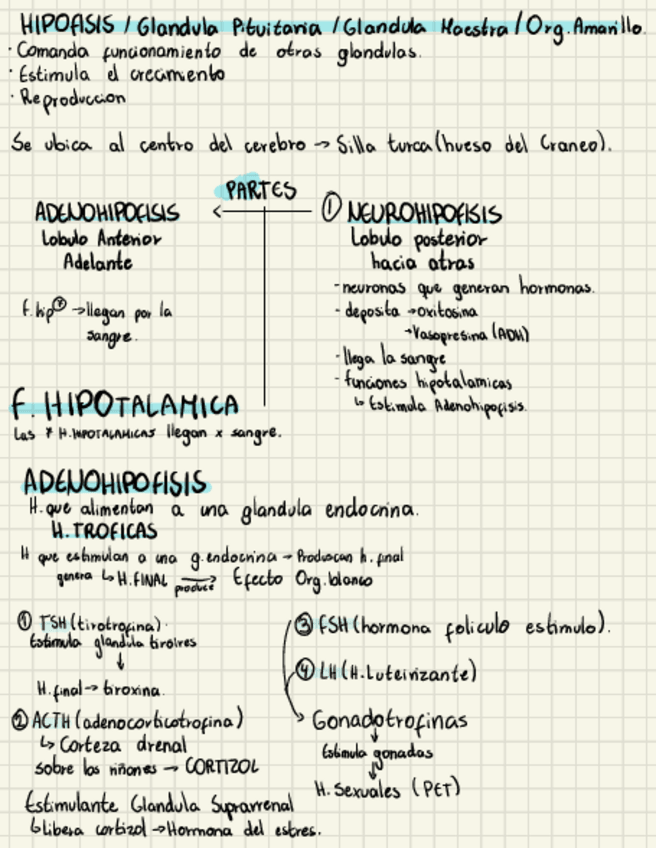 HIPOFISIS / Glandula Pituitaria / Glandula Maestra / Org. Amarillo.
· Comanda funcionamiento de otras glandulas.
· Estimula el crecimiento
· Reproduccion
Se ubica al centro del cerebro → Silla turca (hueso del Craneo).
PARTES
ADENOHIPOFISIS
Lobulo Anterior
Adelante
f. hip ⑦ → llegan por la
sangre.
① NEUROHIPOFISIS
Lobulo posterior
hacia atras
- neuronas que generan hormonas.
- deposita → oxitosina
→ Vasopresina (ADH)
- llega la sangre
- funciones hipotalamicas
↳ Estimula Adenohipofisis.
F. HIPOTALAMICA
Las 7 H. HIPOTALAMICAS llegan x sangre.
ADENOHIPOFISIS
H. que alimentan a una glandula endocrina.
H. TROFICAS
H que estimulan a una g. endocrina → Produscan h. final
genera ↳ H. FINAL → produce Efecto Org. blanco
① TSH (tirotrofina).
Estimula glandula tiroires
↓
H. final → tiroxina.
② ACTH (adenocorticotrofina)
↳ Corteza drenal
sobre los riñones → CORTIZOL
Estimulante Glandula Suprarrenal
↳ libera cortizol → Hormona del estres.
③ FSH (hormona foliculo estimulo).
④ LH (H. Luteinizante)
Gonadotrofinas
↓
Estimula gonadas
↓
H. Sexuales (PET)